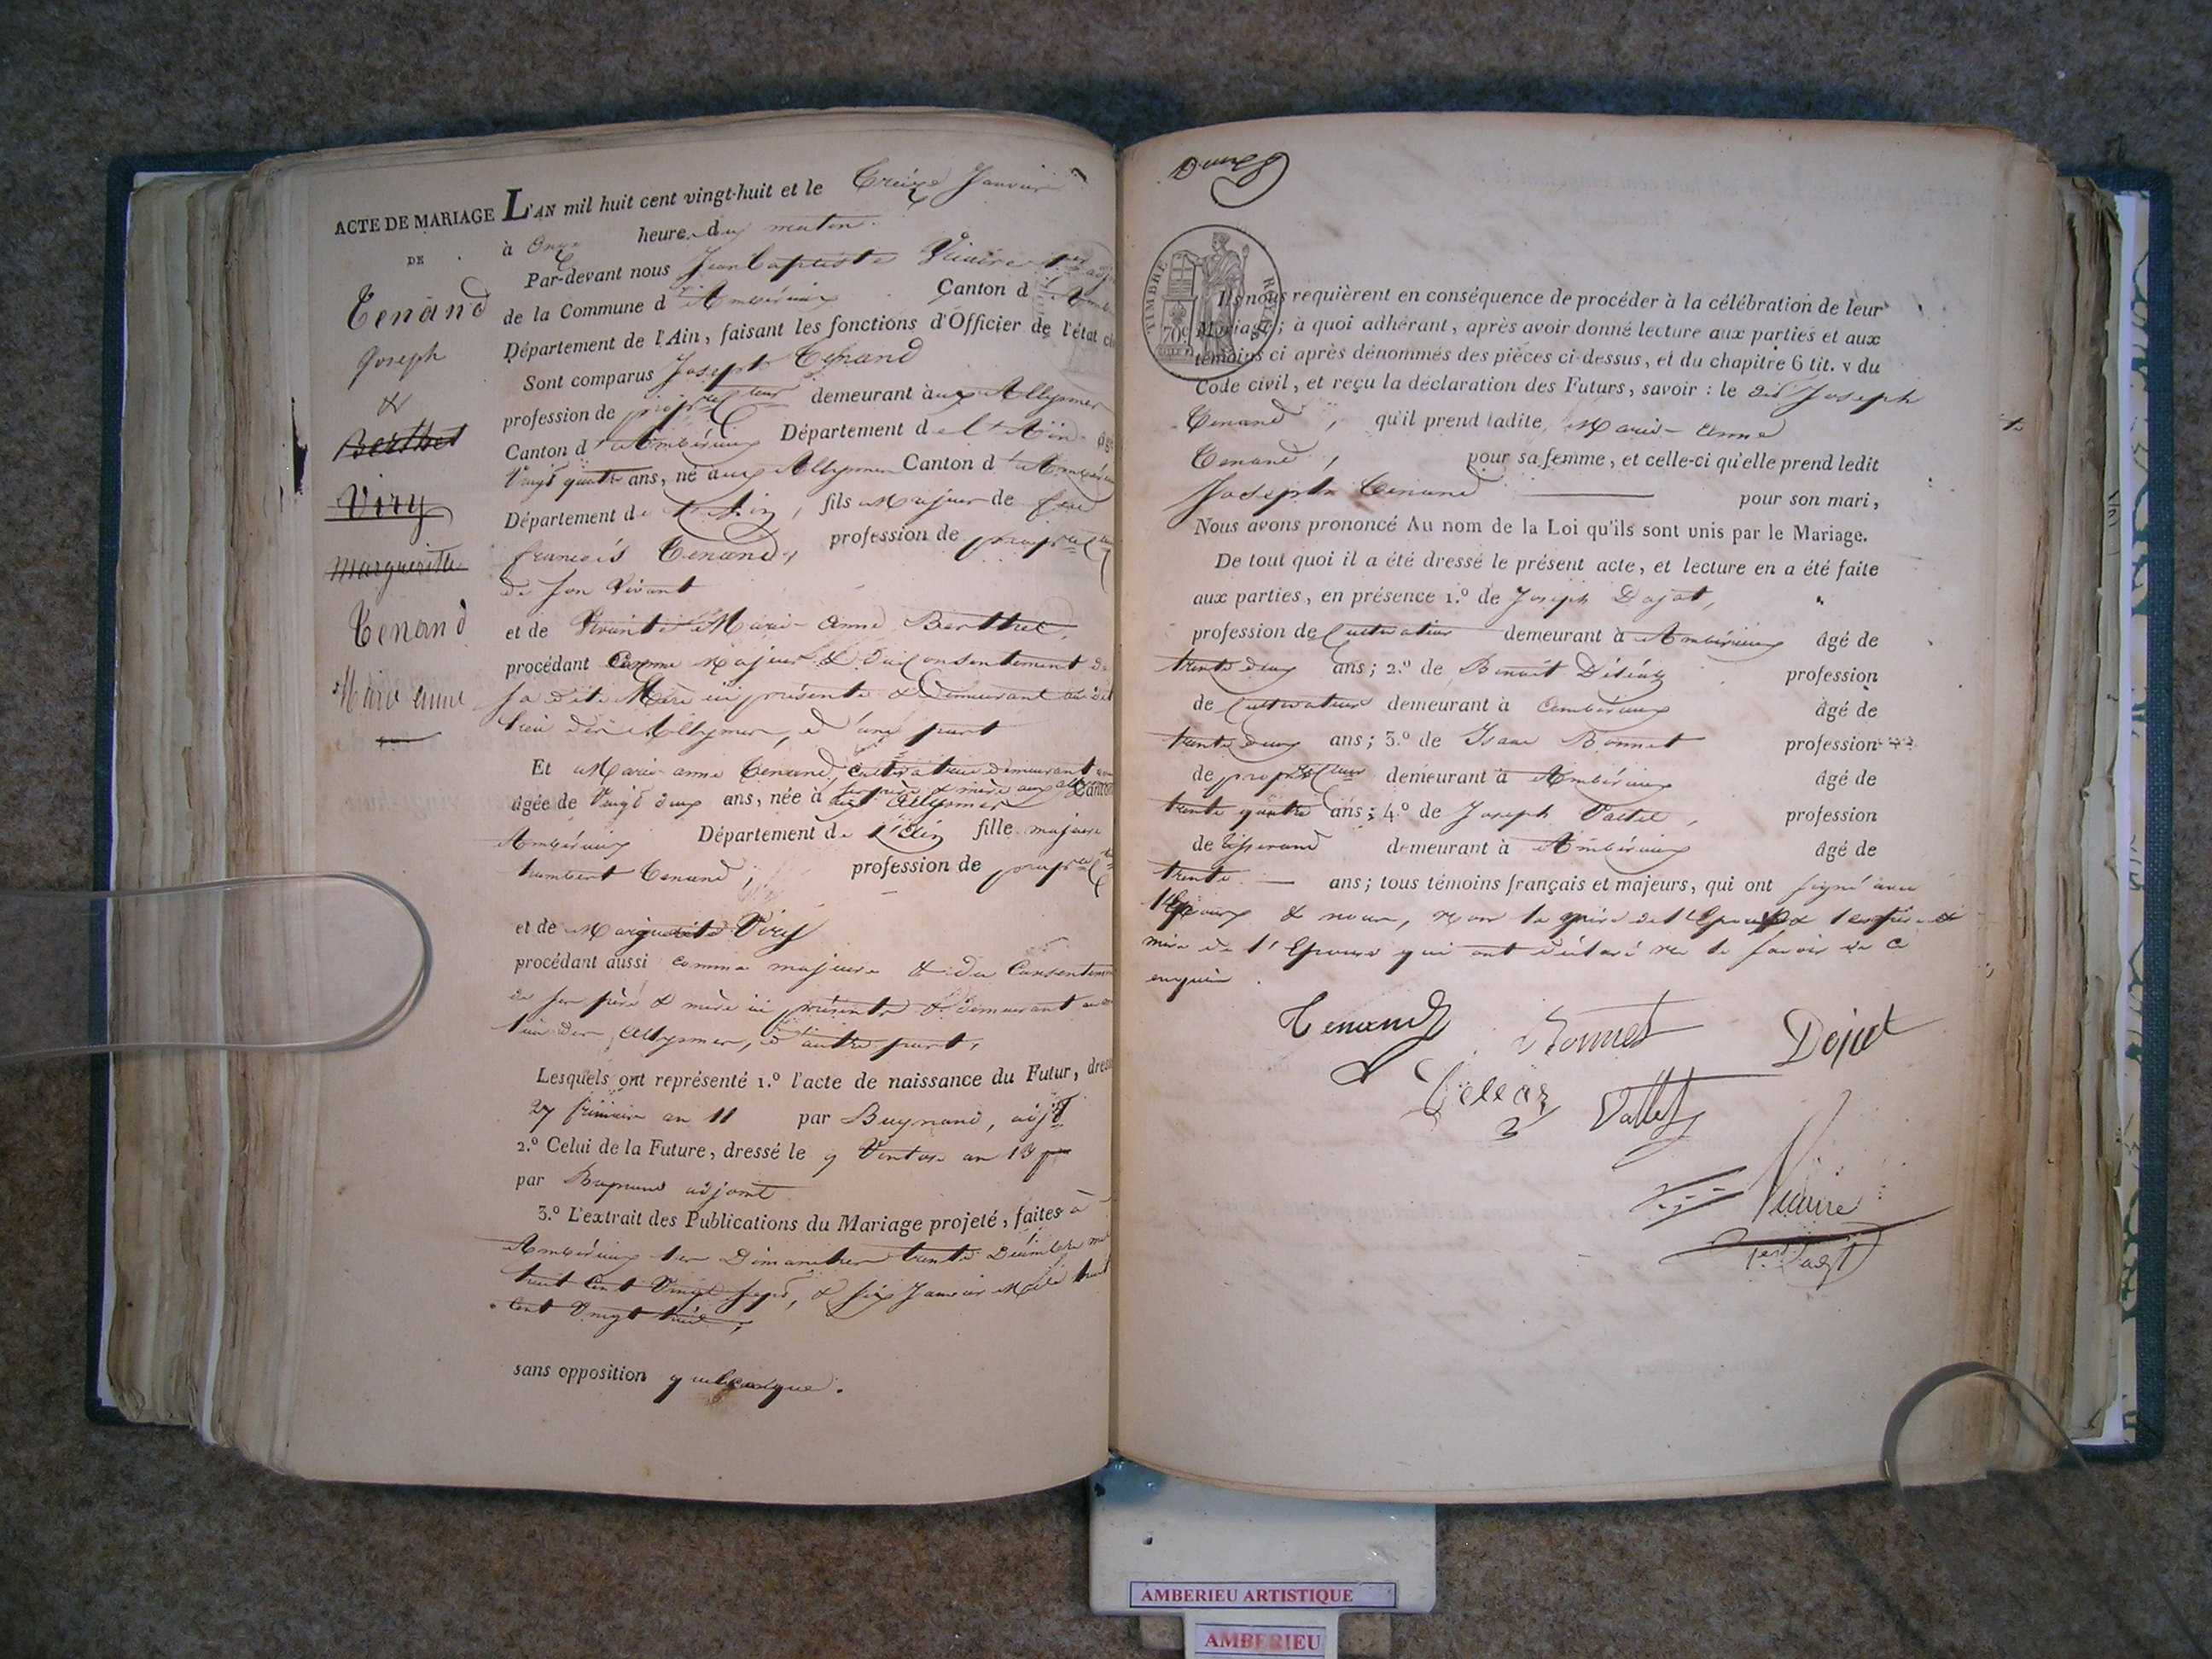 ACTE DE MARIAGE
DE
Tenand
Joseph
&
Berthet
Viry
Marguerite
Tenand
Marie anne
L'AN mil huit cent vingt-huit et le Treize Janvier
à Onze heures du matin.
Par-devant nous Jean Baptiste Vicaire 1er adj
de la Commune d'Ambérieux Canton d'Amb
Département de l'Ain, faisant les fonctions d'Officier de l'état ci
Sont comparus Joseph Tenand
profession de demeurant aux Allymes
Canton d'Ambérieux Département de l'Ain âg
Vingt quatre ans, né aux Allymes Canton d'Ambérieu
Département de l'Ain, fils Majeur de feu
françois Tenand, profession de
de son Vivant
et de Vivante Marie-Anne Berthet,
procédant Comme Majeur & du Consentement de
sa dite Mère ici présente & demeurant au dit
lieu des Allymes, d'une part
Et Marie-anne Tenand, Cultivatrice demeurant
père & mère aux allymes
âgée de Vingt deux ans, née à aux Allymes Canton
Ambérieux Département de l'Ain fille majeure
humbert Tenand, profession de
et de Marguerite Viry
procédant aussi comme majeure & du Consentem
de son père & mère ici présents & demeurant au
lieu des Allymes, d'autre part,
Lesquels ont représenté 1.º l'acte de naissance du Futur, dres
27 frimaire an 11 par Buynand, adjt
2.º Celui de la Future, dressé le 9 Ventose an 13
par Buynand adjoint
3.º L'extrait des Publications du Mariage projeté, faites à
Ambérieux les Dimanches trente Décembre mil
huit Cent Vingt sept, & six Janvier Mil huit
Cent Vingt huit,
sans opposition quelconque.
TIMBRE ROYAL
70 c
Ils nous requièrent en conséquence de procéder à la célébration de leur
Mariage; à quoi adhérant, après avoir donné lecture aux parties et aux
témoins ci après dénommés des pièces ci-dessus, et du chapitre 6 tit. v du
Code civil, et reçu la déclaration des Futurs, savoir : le dit Joseph
Tenand, qu'il prend ladite Marie-Anne
Tenand, pour sa femme, et celle-ci qu'elle prend ledit
Joseph Tenand pour son mari,
Nous avons prononcé Au nom de la Loi qu'ils sont unis par le Mariage.
De tout quoi il a été dressé le présent acte, et lecture en a été faite
aux parties, en présence 1.º de Joseph Dojat,
profession de Cultivateur demeurant à Ambérieux âgé de
trente deux ans; 2.º de Benoit profession
de Cultivateur demeurant à Ambérieux âgé de
trente deux ans; 3.º de Isaac Bonnet profession
de demeurant à Ambérieux âgé de
trente quatre ans; 4.º de Joseph Vallet, profession
de tisserand demeurant à Ambérieux âgé de
trente ans; tous témoins français et majeurs, qui ont signé avec
l'Epoux & nous, non la mère de l'Epoux & les père &
mère de l'Epouse qui ont déclaré ne le savoir de ce
enquis.
Tenand Bonnet Dojat
Vallet
Vicaire
1er adjt
AMBERIEU ARTISTIQUE
AMBERIEU